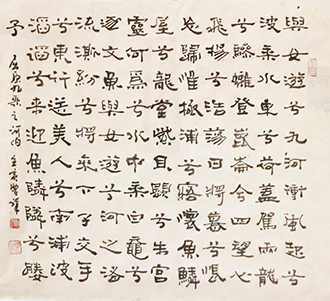 與女遊兮九河衝風起兮
波乘水車兮荷蓋駕兩龍
兮驂螭登崑崙兮四望心
飛揚兮浩蕩日將暮兮悵
忘歸惟極浦兮寤懷魚鱗
屋兮龍堂紫貝闕兮朱宮
靈何為兮水中乘白黿兮
逐文魚與女遊兮河之渚
流澌紛兮將來下子交手
兮東行送美人兮南浦波
滔〻兮來迎魚鱗鱗兮媵
予
屈原九歌之河伯 壬寅